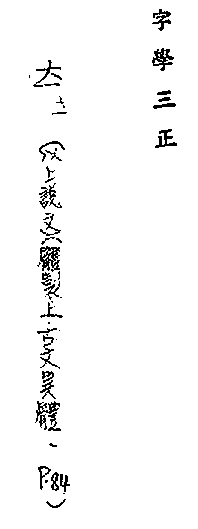 字學三正
夳 (以上說文體製上古文異體、P.84)